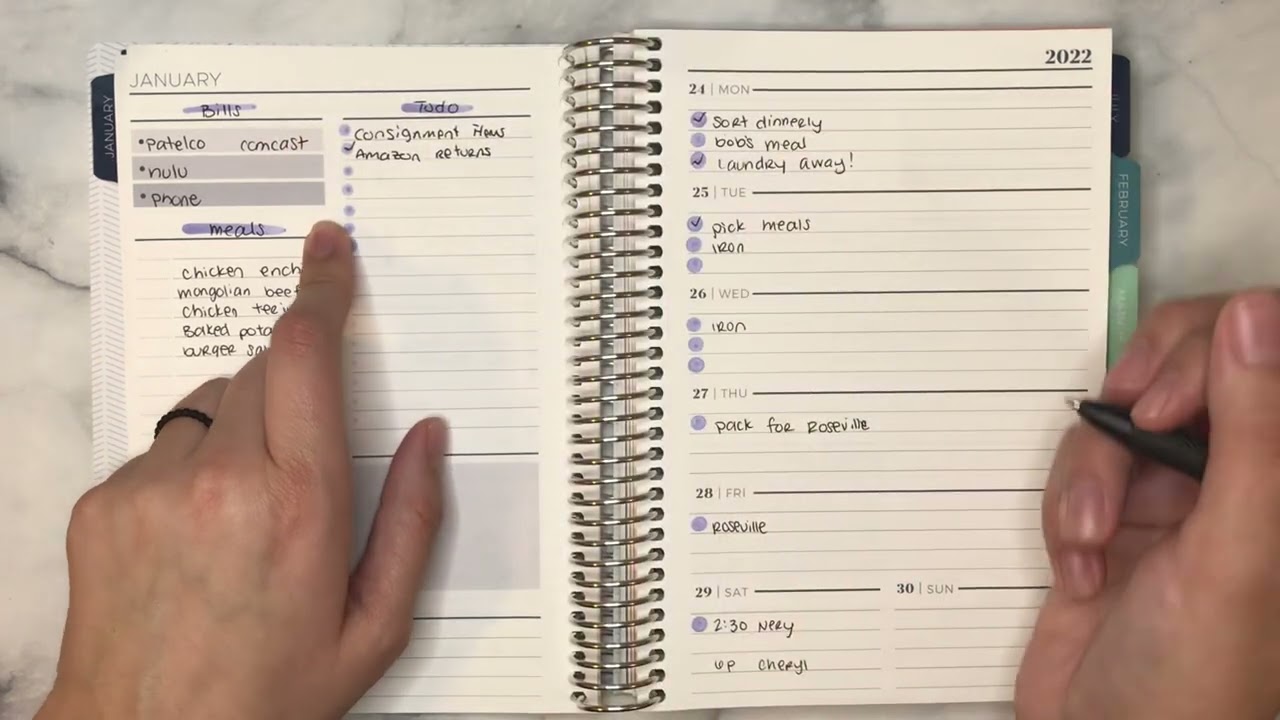 JANUARY
Bills
•Patelco comcast
•nulu
•phone
meals
chicken ench
mongolian beef
chicken
Baked pota
burger
Todo
consignment Items
Amazon returns
2022
24 | MON
sort dinnerly
bob's meal
laundry away!
25 | TUE
pick meals
IRON
26 | WED
IRON
27 | THU
pack for Roseville
28 | FRI
Roseville
29 | SAT
2:30 Nery
up cheryl
30 | SUN
JANUARY
FEBRUARY